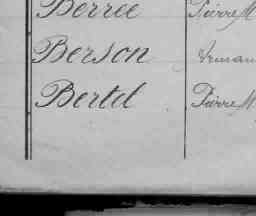 Berree Pierre M
Berson Arman
Bertel Pierre M